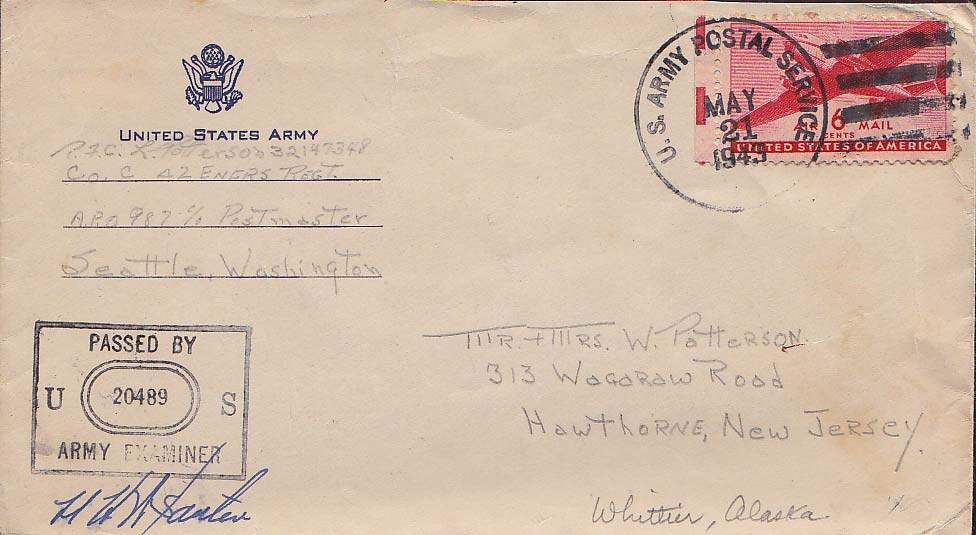 UNITED STATES ARMY
P.F.C. R. Patterson 32147348
Co. C 42 ENGRS REGT.
A.P.O 987 c/o Postmaster
Seattle, Washington
U.S. ARMY POSTAL SERVICE
MAY
21
1943
AIR 6 MAIL
CENTS
UNITED STATES OF AMERICA
PASSED BY
U 20489 S
ARMY EXAMINER
MR. + MRS. W. PATTERSON.
313 WAGARAW ROAD
HAWTHORNE, NEW JERSEY.
Whittier, Alaska